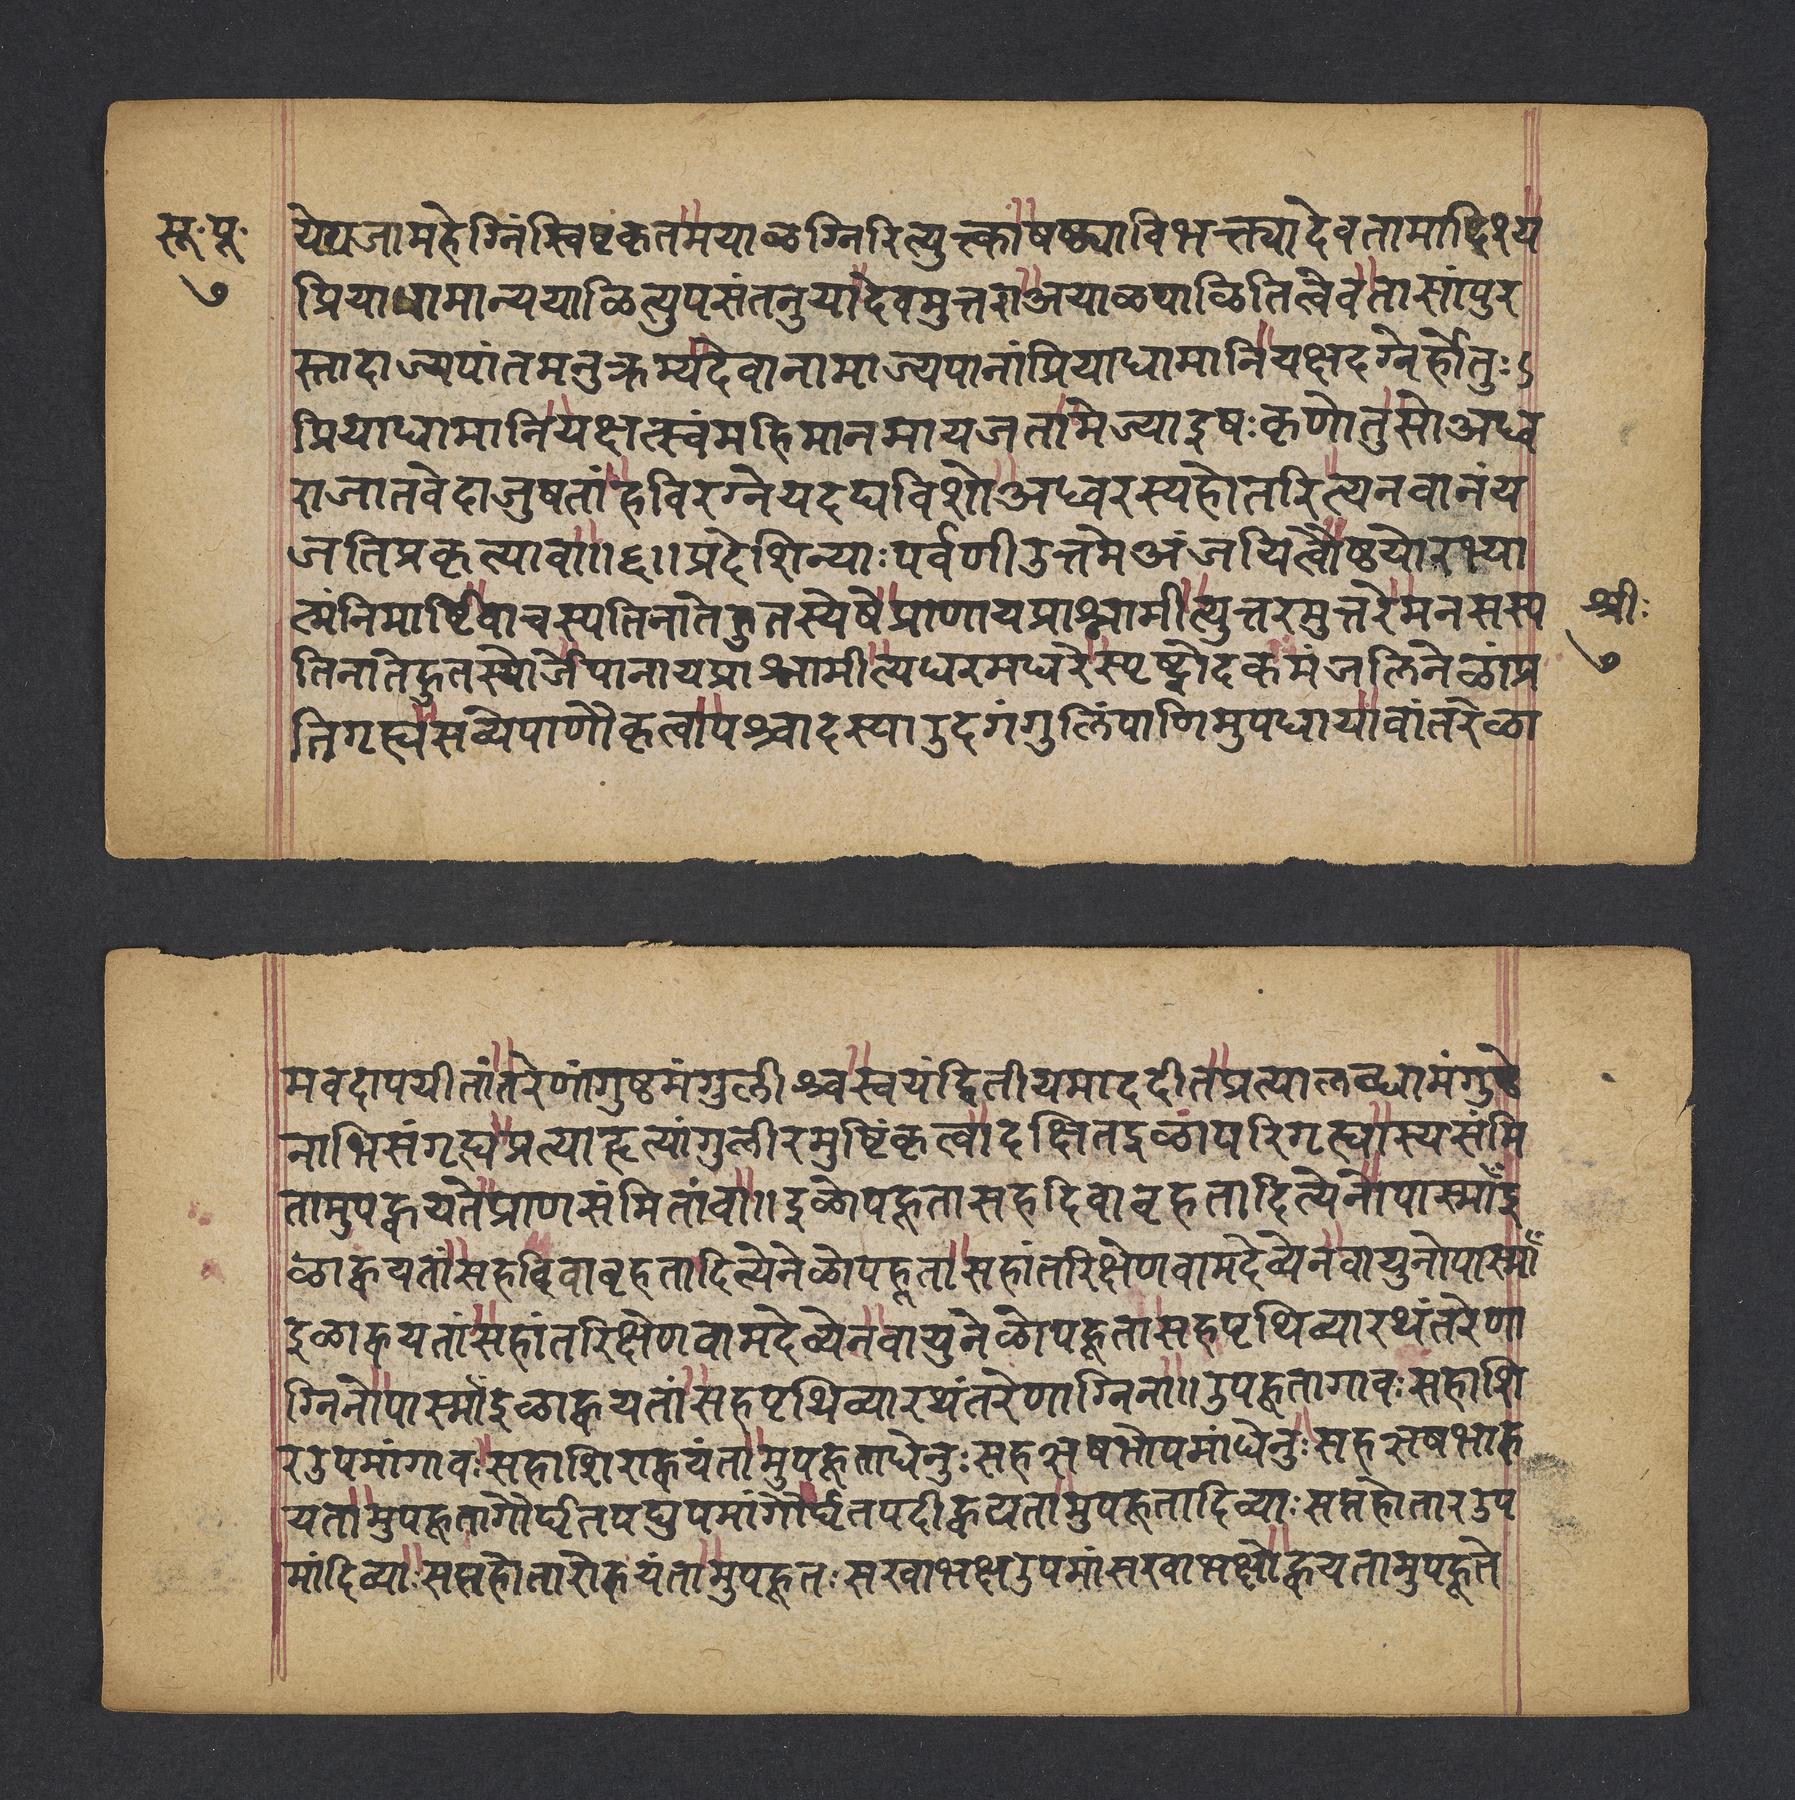 सू॰पू॰ येयजामहेग्निंस्विष्टकृतमयाळग्निरित्युक्त्काषष्ठ्याविभक्त्यादेवतामादिश्य
७ प्रियाधामान्ययाळित्युपसंतनुयादेवमुत्तराअयाळयाळितित्वेवतासांपुर
स्तादाज्यपांतमनुक्रम्यदेवानामाज्यपानांप्रियाधामानियक्षदग्नेर्होतुः
प्रियाधामानियक्षत्स्वंमहिमानमायजतामेज्याइषःकृणोतुसोअध्व
राजातवेदाजुषतांहविरग्नेयदद्यविशोअध्वरस्यहोतरित्यनवानंय
जतिप्रकृत्यावा॥६॥प्रदेशिन्याःपर्वणीउत्तमेअंजयित्वौष्ठयोरभ्या
त्मंनिमार्ष्टिवाचस्पतिनातेहुतस्येषेप्राणायप्राश्नामीत्युत्तरमुत्तरेमनसस्प श्रीः
तिनातेहुतस्योर्जेपानायप्राश्नामीत्यधरमधरेस्पृष्ट्वोदकमंजलिनेळांप्र ७
तिगृह्यसव्येपाणौकृत्वापश्चादस्याउदगंगुलिंपाणिमुपधायावांतरेळा
मवदापयीतांतरेणांगुष्ठमंगुलीश्चस्वयंद्वितीयमाददीतप्रत्यालब्धामंगुष्ठे
नाभिसंगृह्यप्रत्याहृत्यांगुलीरमुष्टिंकृत्वादक्षिणतइळांपरिगृह्यास्यसंमि
तामुपह्वयतेप्राणसंमितांवा॥इळोपहूतासहदिवाबृहतादित्येनोपास्माँइ
ळाह्वयतांसहदिवाबृहतादित्येनेळोपहूतासहांतरिक्षेणवामदेव्येनवायुनोपास्माँ
इळाह्वयतांसहांतरिक्षेणवामदेव्येनवायुनेळोपहूतासहपृथिव्यारथंतरेणा
ग्निनोपास्माँइळाह्वयतांसहपृथिव्यारथंतरेणाग्निना॥उपहूतागावःसहाशि
रउपमांगावःसहाशिराह्वयंतामुपहूताधेनुःसहऋषभोपमांधेनुःसहऋषभाह्व
यतामुपहूतागौर्घृतपद्युपमांगौर्घृतपदीह्वयतामुपहूतादिव्याःसप्तहोतारउप
मांदिव्याःसप्तहोतारोह्वयंतामुपहूतःसखाभक्षउपमांसखाभक्षोह्वयतामुपहूते